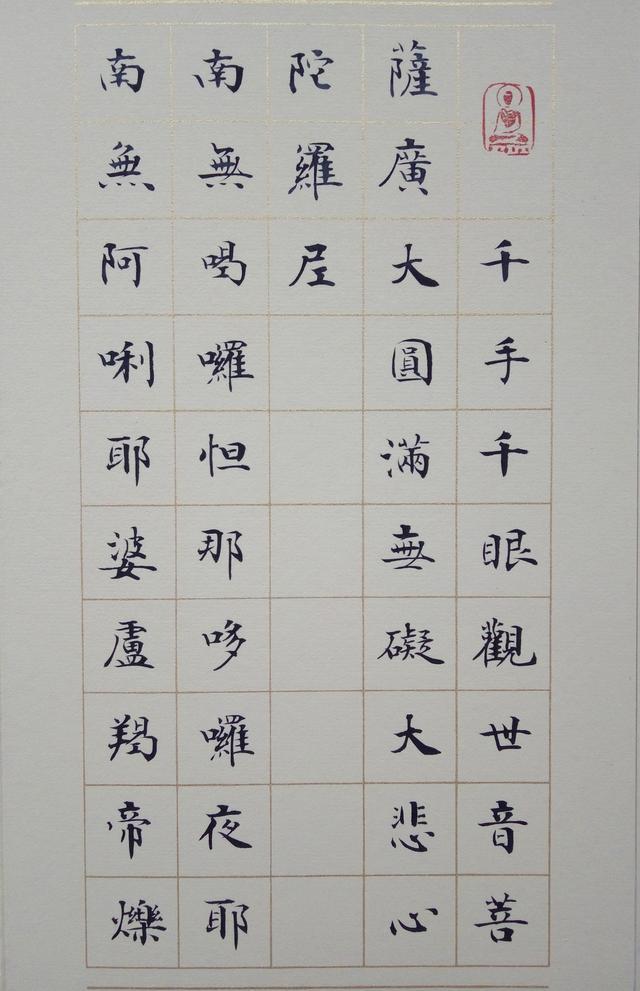 千手千眼觀世音菩
薩廣大圓滿無礙大悲心
陀羅尼
南無喝囉怛那哆囉夜耶
南無阿唎耶婆盧羯帝爍